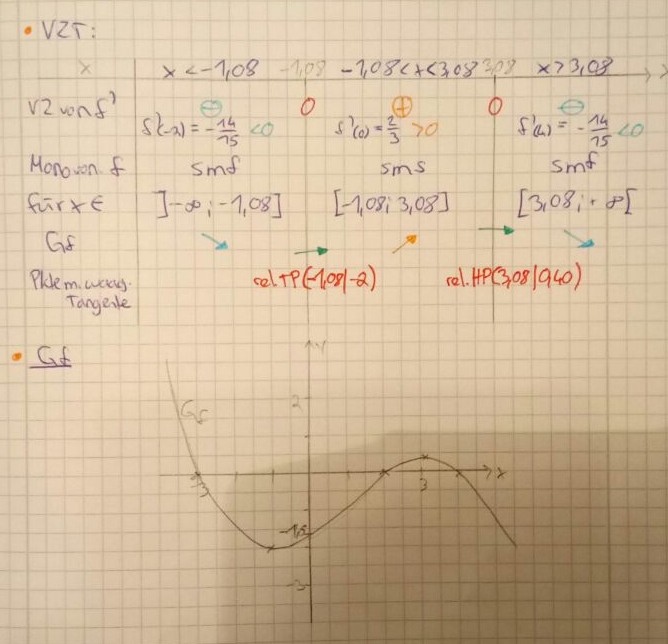 • VZT:
x x < -1,08 -1,08 -1,08 < x < 3,08 3,08 x > 3,08
VZ von f' ⊖ 0 ⊕ 0 ⊖
f'(-2) = -14/15 < 0 f'(0) = 2/3 > 0 f'(4) = -14/15 < 0
Mono von f smf sms smf
für x ∈ ]-∞ ; -1,08] [-1,08 ; 3,08] [3,08 ; +∞[
Gf ↘ → ↗ → ↘
Pkte m. waag. rel. TP (-1,08 | -2) rel. HP (3,08 | 0,40)
Tangente
• Gf
y
2
Gf
x
-3
3
-1,6
-3